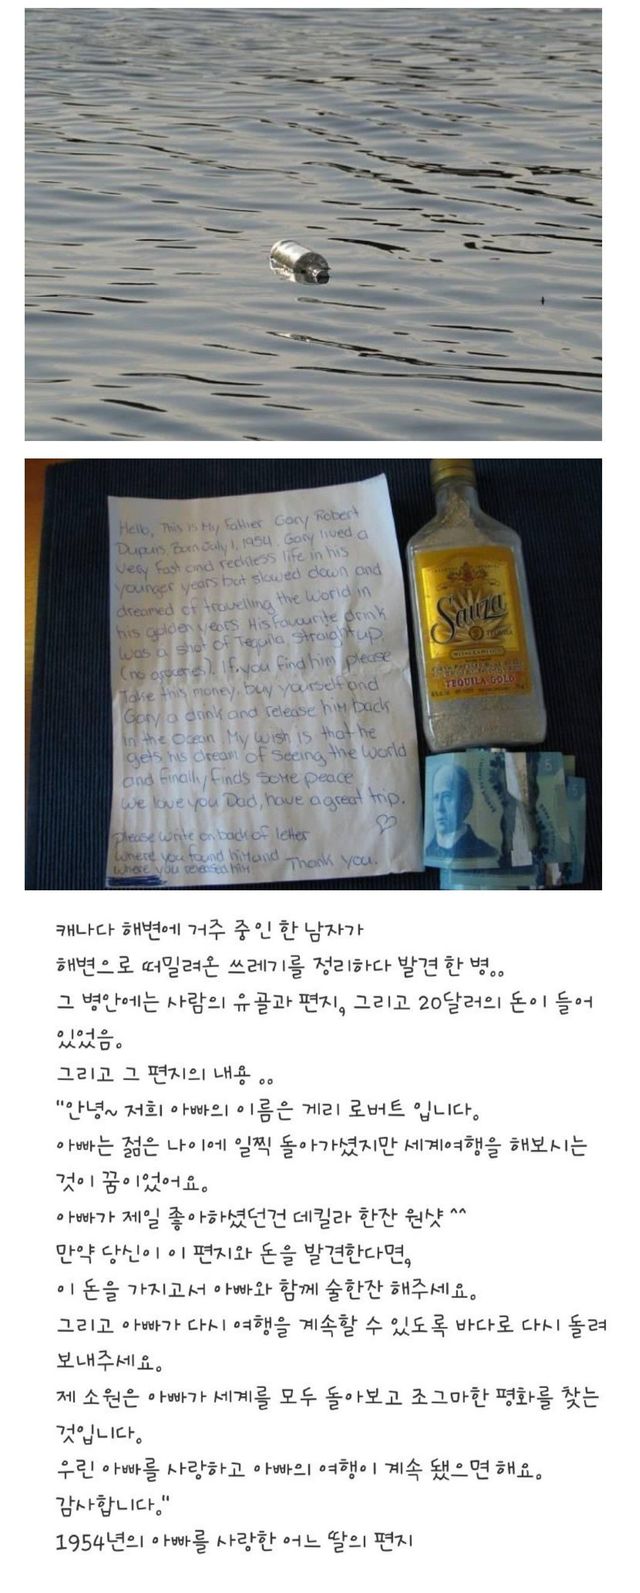 Hello, This is My Father Gary Robert
Dupuis, Born July 1, 1954. Gary lived a
very fast and reckless life in his
younger years but slowed down and
dreamed of travelling the world in
his golden years. His favourite drink
was a shot of Tequila straight up
(no groceries). If you find him please
Take this money, buy yourself and
Gary a drink and release him back
in the ocean. My wish is that he
gets his dream of seeing the world
and finally finds some peace
We love you Dad, have a great trip.
Please write on back of letter
where you found him and
where you released him.
Thank you.
Sauza
TEQUILA GOLD
5
캐나다 해변에 거주 중인 한 남자가
해변으로 떠밀려온 쓰레기를 정리하다 발견한 병。。
그 병안에는 사람의 유골과 편지, 그리고 20달러의 돈이 들어
있었음。
그리고 그 편지의 내용 。。
"안녕~ 저희 아빠의 이름은 게리 로버트 입니다。
아빠는 젊은 나이에 일찍 돌아가셨지만 세계여행을 해보시는
것이 꿈이었어요。
아빠가 제일 좋아하셨던건 데킬라 한잔 원샷 ^^
만약 당신이 이 편지와 돈을 발견한다면,
이 돈을 가지고서 아빠와 함께 술한잔 해주세요。
그리고 아빠가 다시 여행을 계속할 수 있도록 바다로 다시 돌려
보내주세요。
제 소원은 아빠가 세계를 모두 돌아보고 조그마한 평화를 찾는
것입니다。
우린 아빠를 사랑하고 아빠의 여행이 계속 됐으면 해요。
감사합니다。"
1954년의 아빠를 사랑한 어느 딸의 편지